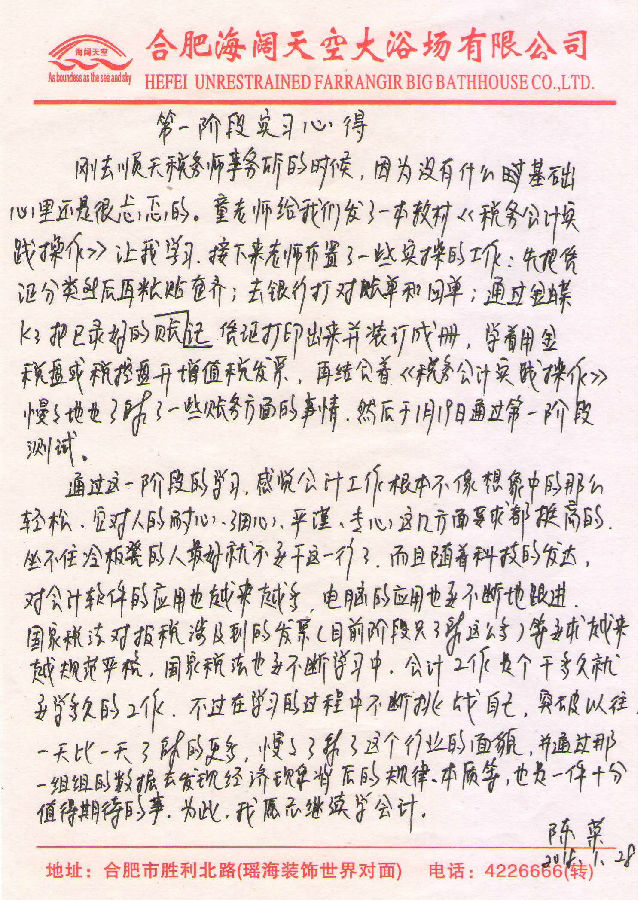 海阔天空
As boundless as the sea and sky
合肥海阔天空大浴场有限公司
HEFEI UNRESTRAINED FARRANGIR BIG BATHHOUSE CO.,LTD.
第一阶段实习心得
刚去顺天税务师事务所的时候，因为没有什么基础
心里还是很忐忑的。童老师给我们发了一本教材《税务会计实
践操作》让我学习．接下来老师布置了一些实操的工作：先把凭
证分类型后再粘贴整齐；去银行打对账单和回单；通过金蝶
K3把已录好的账记 凭证打印出来并装订成册，学着用金
税盘或税控盘开增值税发票，再结合着《税务会计实践操作》
慢慢地也了解了一些账务方面的事情．然后于1月19日通过第一阶段
测试。
通过这一阶段的学习，感觉会计工作根本不像想象中的那么
轻松．它对人的耐心、细心、严谨、专心这几方面要求都挺高的．
坐不住冷板凳的人最好就不要干这一行了．而且随着科技的发达，
对会计软件的应用也越来越多，电脑的应用也要不断地跟进．
国家税法对报税涉及到的发票（目前阶段只了解这么多）等要求越来
越规范严格，国家税法也要不断学习中．会计工作是个干多久就
要学多久的工作．不过在学习的过程中不断挑战自己，突破以往，
一天比一天了解的更多，慢慢了解了这个行业的面貌，并通过那
一组组的数据去发现经济现象背后的规律、本质等，也是一件十分
值得期待的事．为此，我愿意继续学会计．
陈
2018.1.28
地址：合肥市胜利北路(瑶海装饰世界对面) 电话：4226666(转)